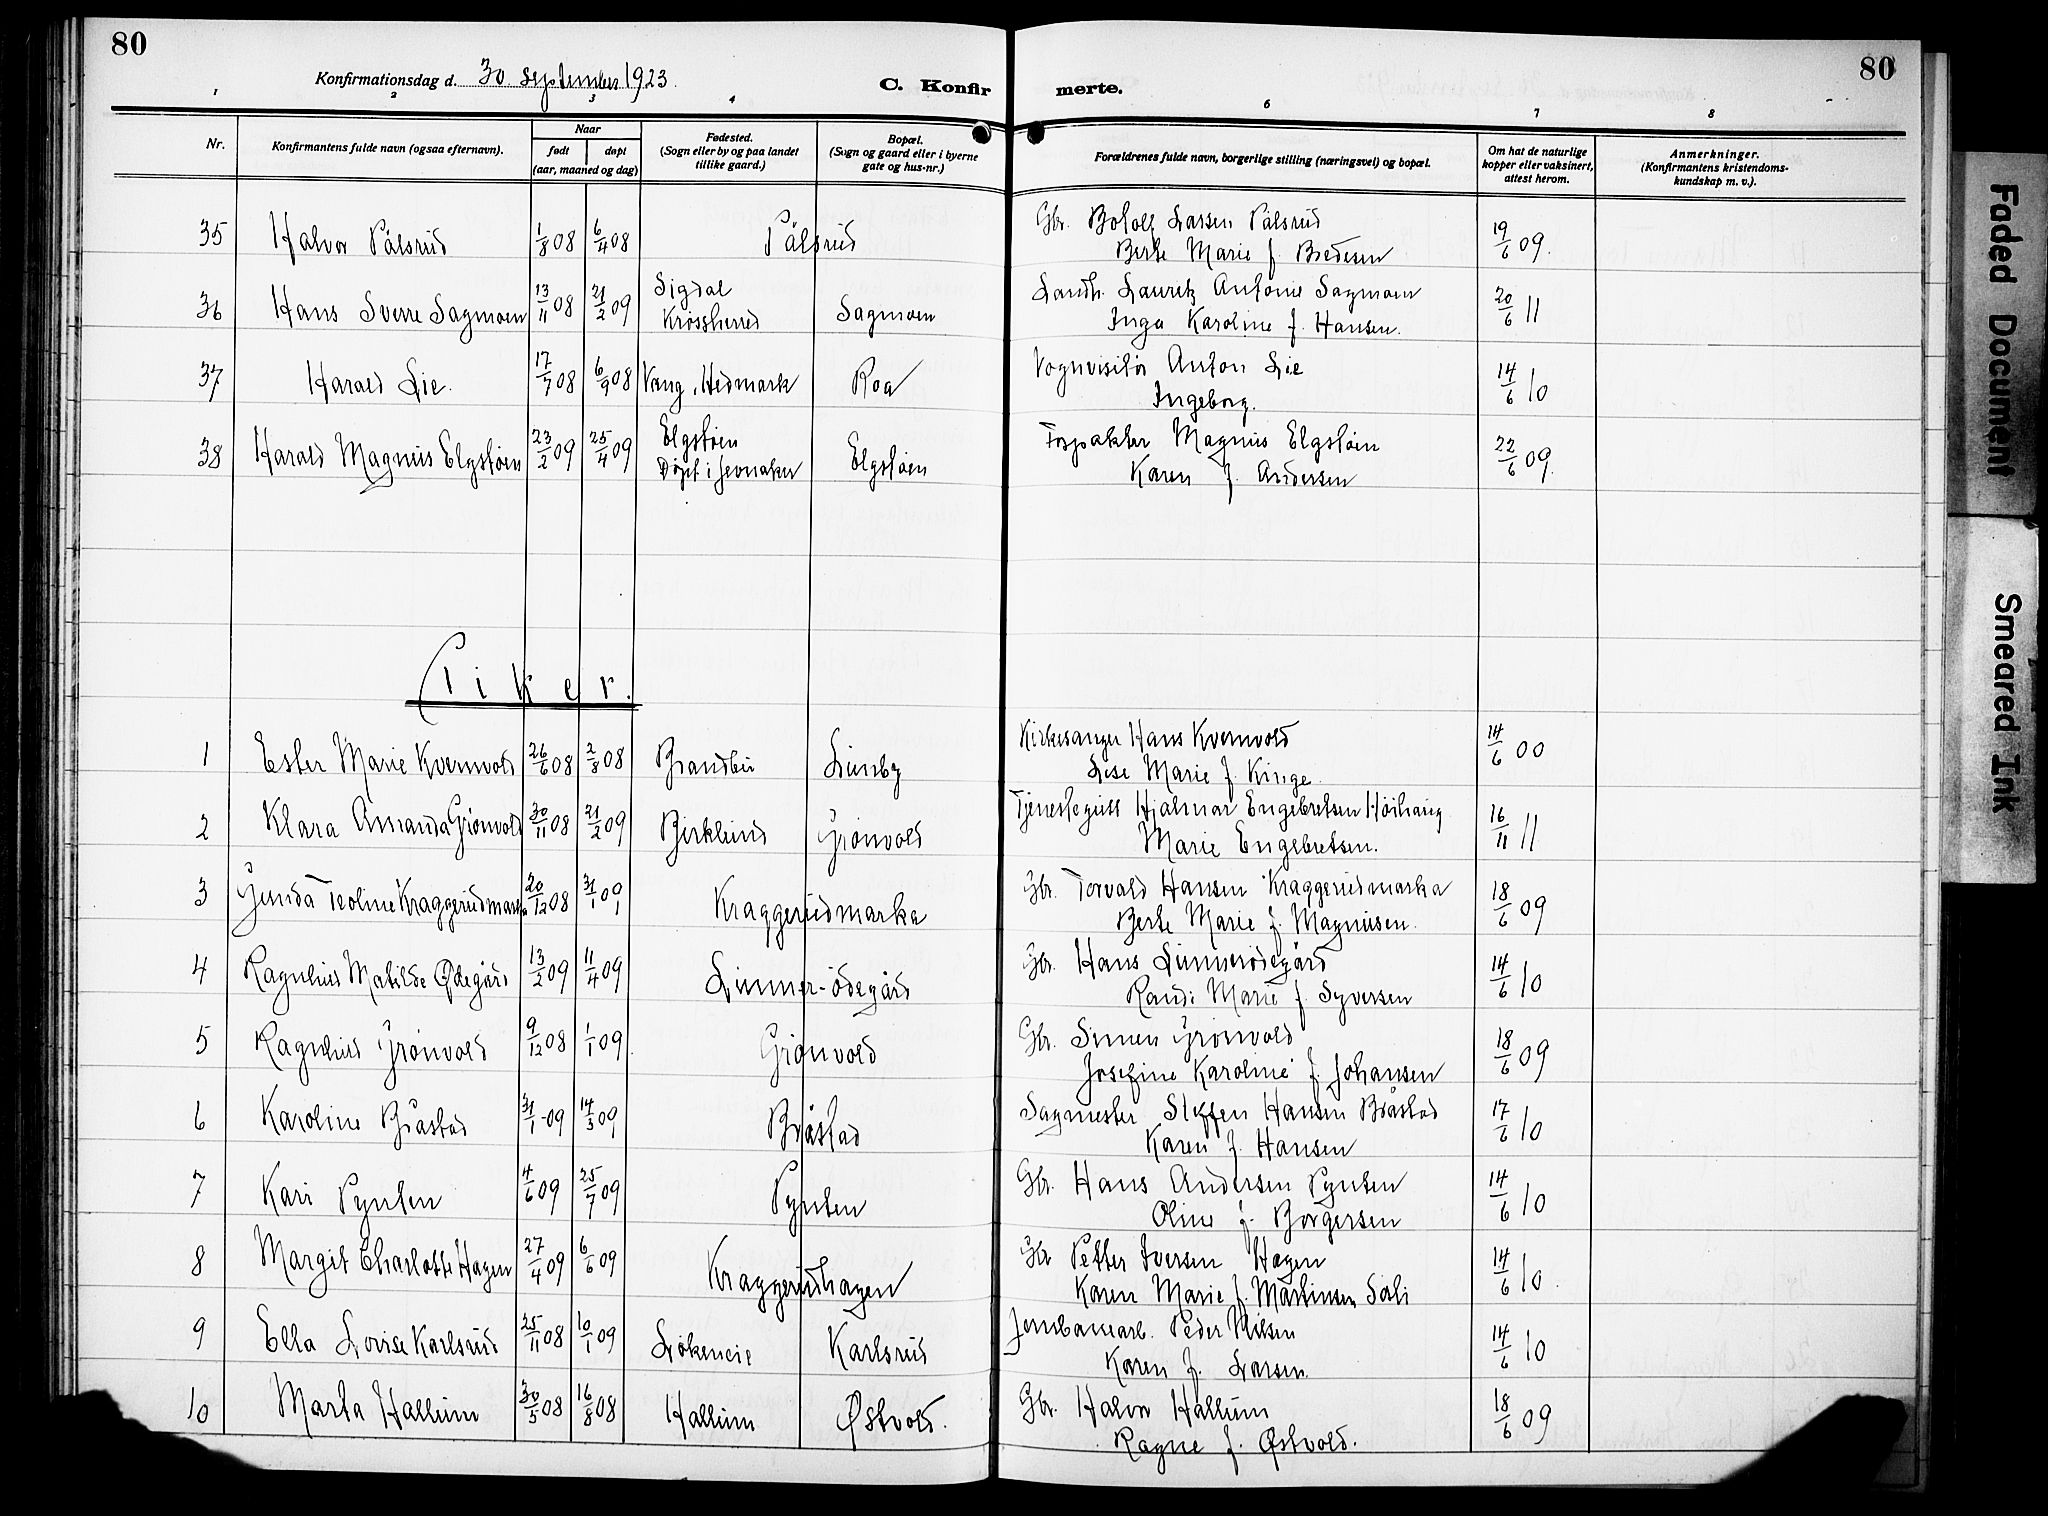 80
80
Konfirmationsdag d. 30. september 1923.
C. Konfirmerte.
1 2 3 4 5 6 7 8
Nr. | Konfirmantens fulde navn (ogsaa efternavn). | Naar født døpt (aar, maaned og dag) | Fødested. (Sogn eller by og paa landet tillike gaard.) | Bopæl. (Sogn og gaard eller i byerne gate og hus-nr.) | Forældrenes fulde navn, borgerlige stilling (næringsvei) og bopæl. | Om hat de naturlige kopper eller vaksinert, attest herom. | Anmerkninger. (Konfirmantens kristendoms-kundskap m. v.).
35 Halvor Pålsrud 1/8 08 6/4 08 Pålsrud Gbr. Botolf Larsen Pålsrud 19/6 09.
Berte Marie f. Bredesen
36 Hans Sverre Sagmoen 13/11 08 21/2 09 Sigdal Krossherred Sagmoen Landh. Lauretz Antonie Sagmoen 20/6 11
Inga Karoline f. Hansen.
37 Harald Lie. 17/7 08 6/9 08 Vang, Hedmark Roa Vognvisitør Anton Lie 14/6 10
Ingeborg.
38 Harald Magnus Elgstøen 23/2 09 25/4 09 Elgstøen Døpt i Jevnaker Elgstøen Forpakter Magnus Elgstøen 22/6 09.
Karen f. Andersen
Piker.
1 Ester Marie Kvernvold 26/6 08 2/8 08 Brandbu Lunby Kirkesanger Hans Kvernvold 14/6 00
Lise Marie f. Kinge.
2 Klara Amanda Grønvold 30/11 08 21/2 09 Birklund Grønvold Tjenestegutt Hjalmar Engebretsen Høihaug 16/11 11
Marie Engebretsen.
3 Gunda Teoline Kraggerudmarka 20/12 08 31/1 09 Kraggerudmarka Gbr. Torvald Hansen Kraggerudmarka 18/6 09
Berte Marie f. Magnusen.
4 Ragnhild Matilde Ødegård 13/2 09 11/4 09 Lunner-ødegård Gbr. Hans Lunnerødegård 14/6 10
Randi Marie f. Syversen
5 Ragnhild Grønvold 9/12 08 1/1 09. Grønvold Gbr. Simen Grønvold 18/6 09
Josefine Karoline f. Johansen
6 Karoline Bråstad 31/1 - 09 14/3 09 Bråstad Sagmester Steffen Hansen Bråstad 17/6 10
Karen f. Hansen
7 Kari Pynten 4/6 09 25/7 09 Pynten Gbr. Hans Andersen Pynten 14/6 10
Oline f. Borgersen
8 Margit Charlotte Hagen 27/4 09 6/6 09 Kraggerudhagen Gbr Petter Iversen Hagen 14/6 10.
Karen Marie f. Martinsen Søli
9 Ella Lovise Karlsrud 25/11 08 10/1 09 Løkeneie Karlsrud Jernbanearb. Peder Nilsen 14/6 10
Karen f. Larsen.
10 Marta Hallum 30/5 08 16/8 08 Hallum Østvold. Gbr. Halvor Hallum 18/6 09
Ragne f. Østvold.
Faded Document
Smeared Ink